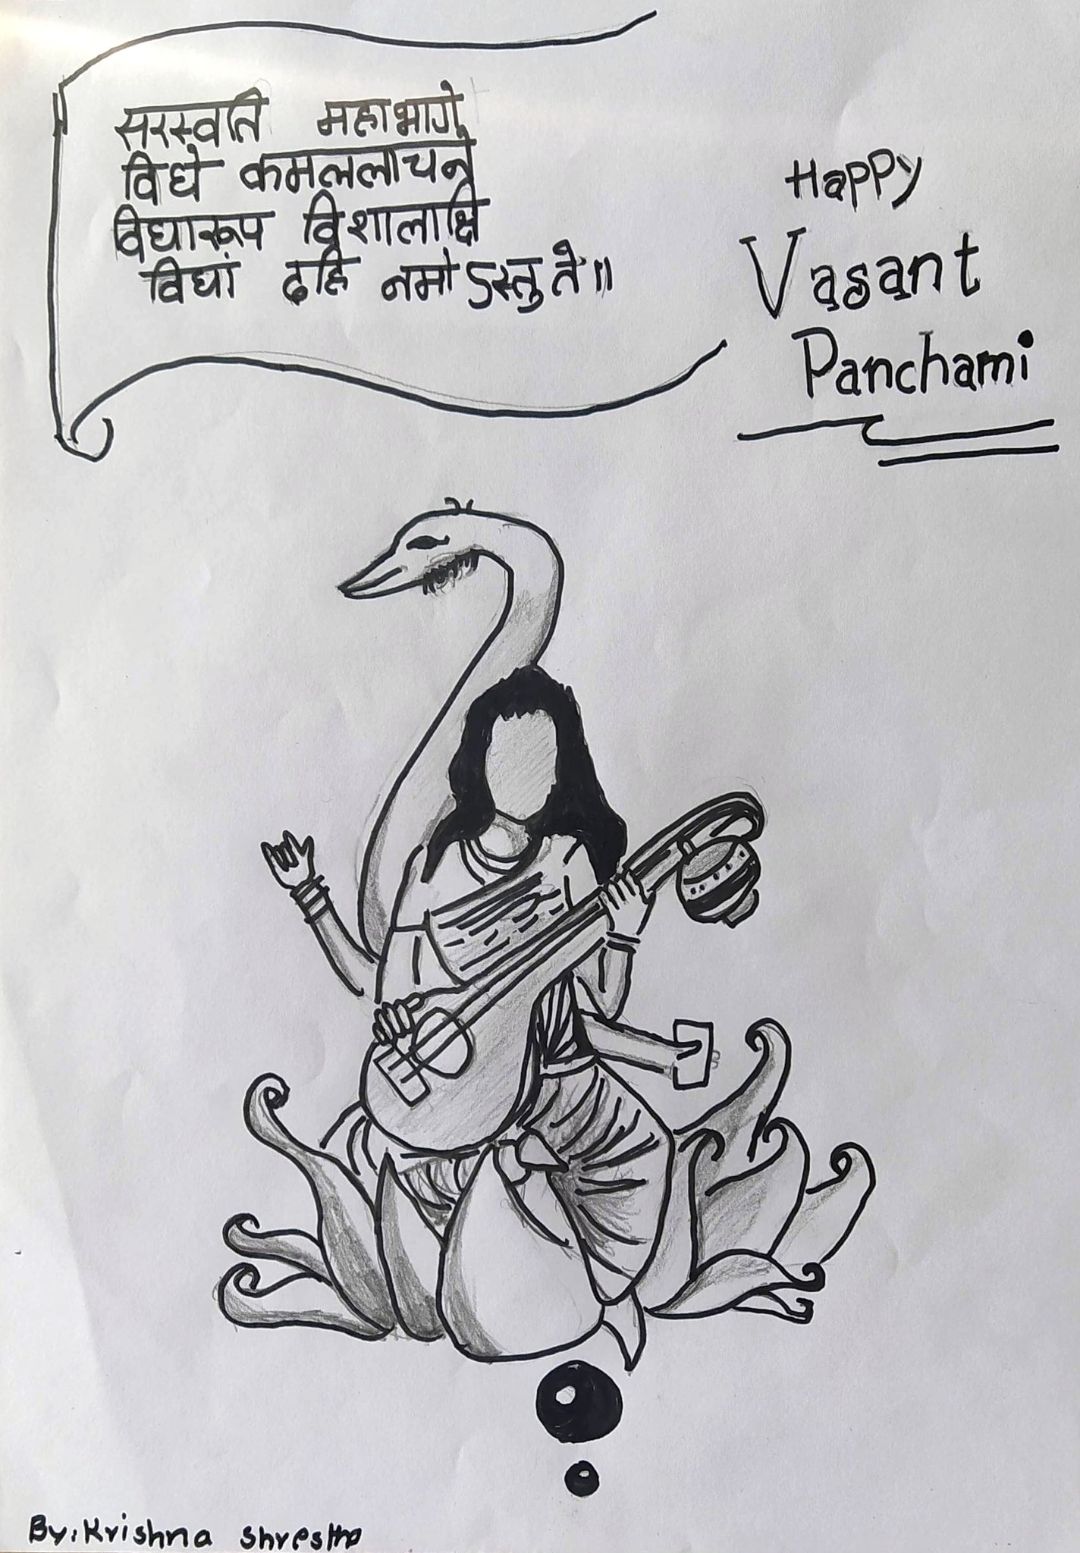 सरस्वति महाभागे
विद्ये कमललाचने
विद्यारूप विशालाक्षि
विद्यां दहि नमोऽस्तु ते॥
Happy
Vasant
Panchami
By: Krishna Shrestha